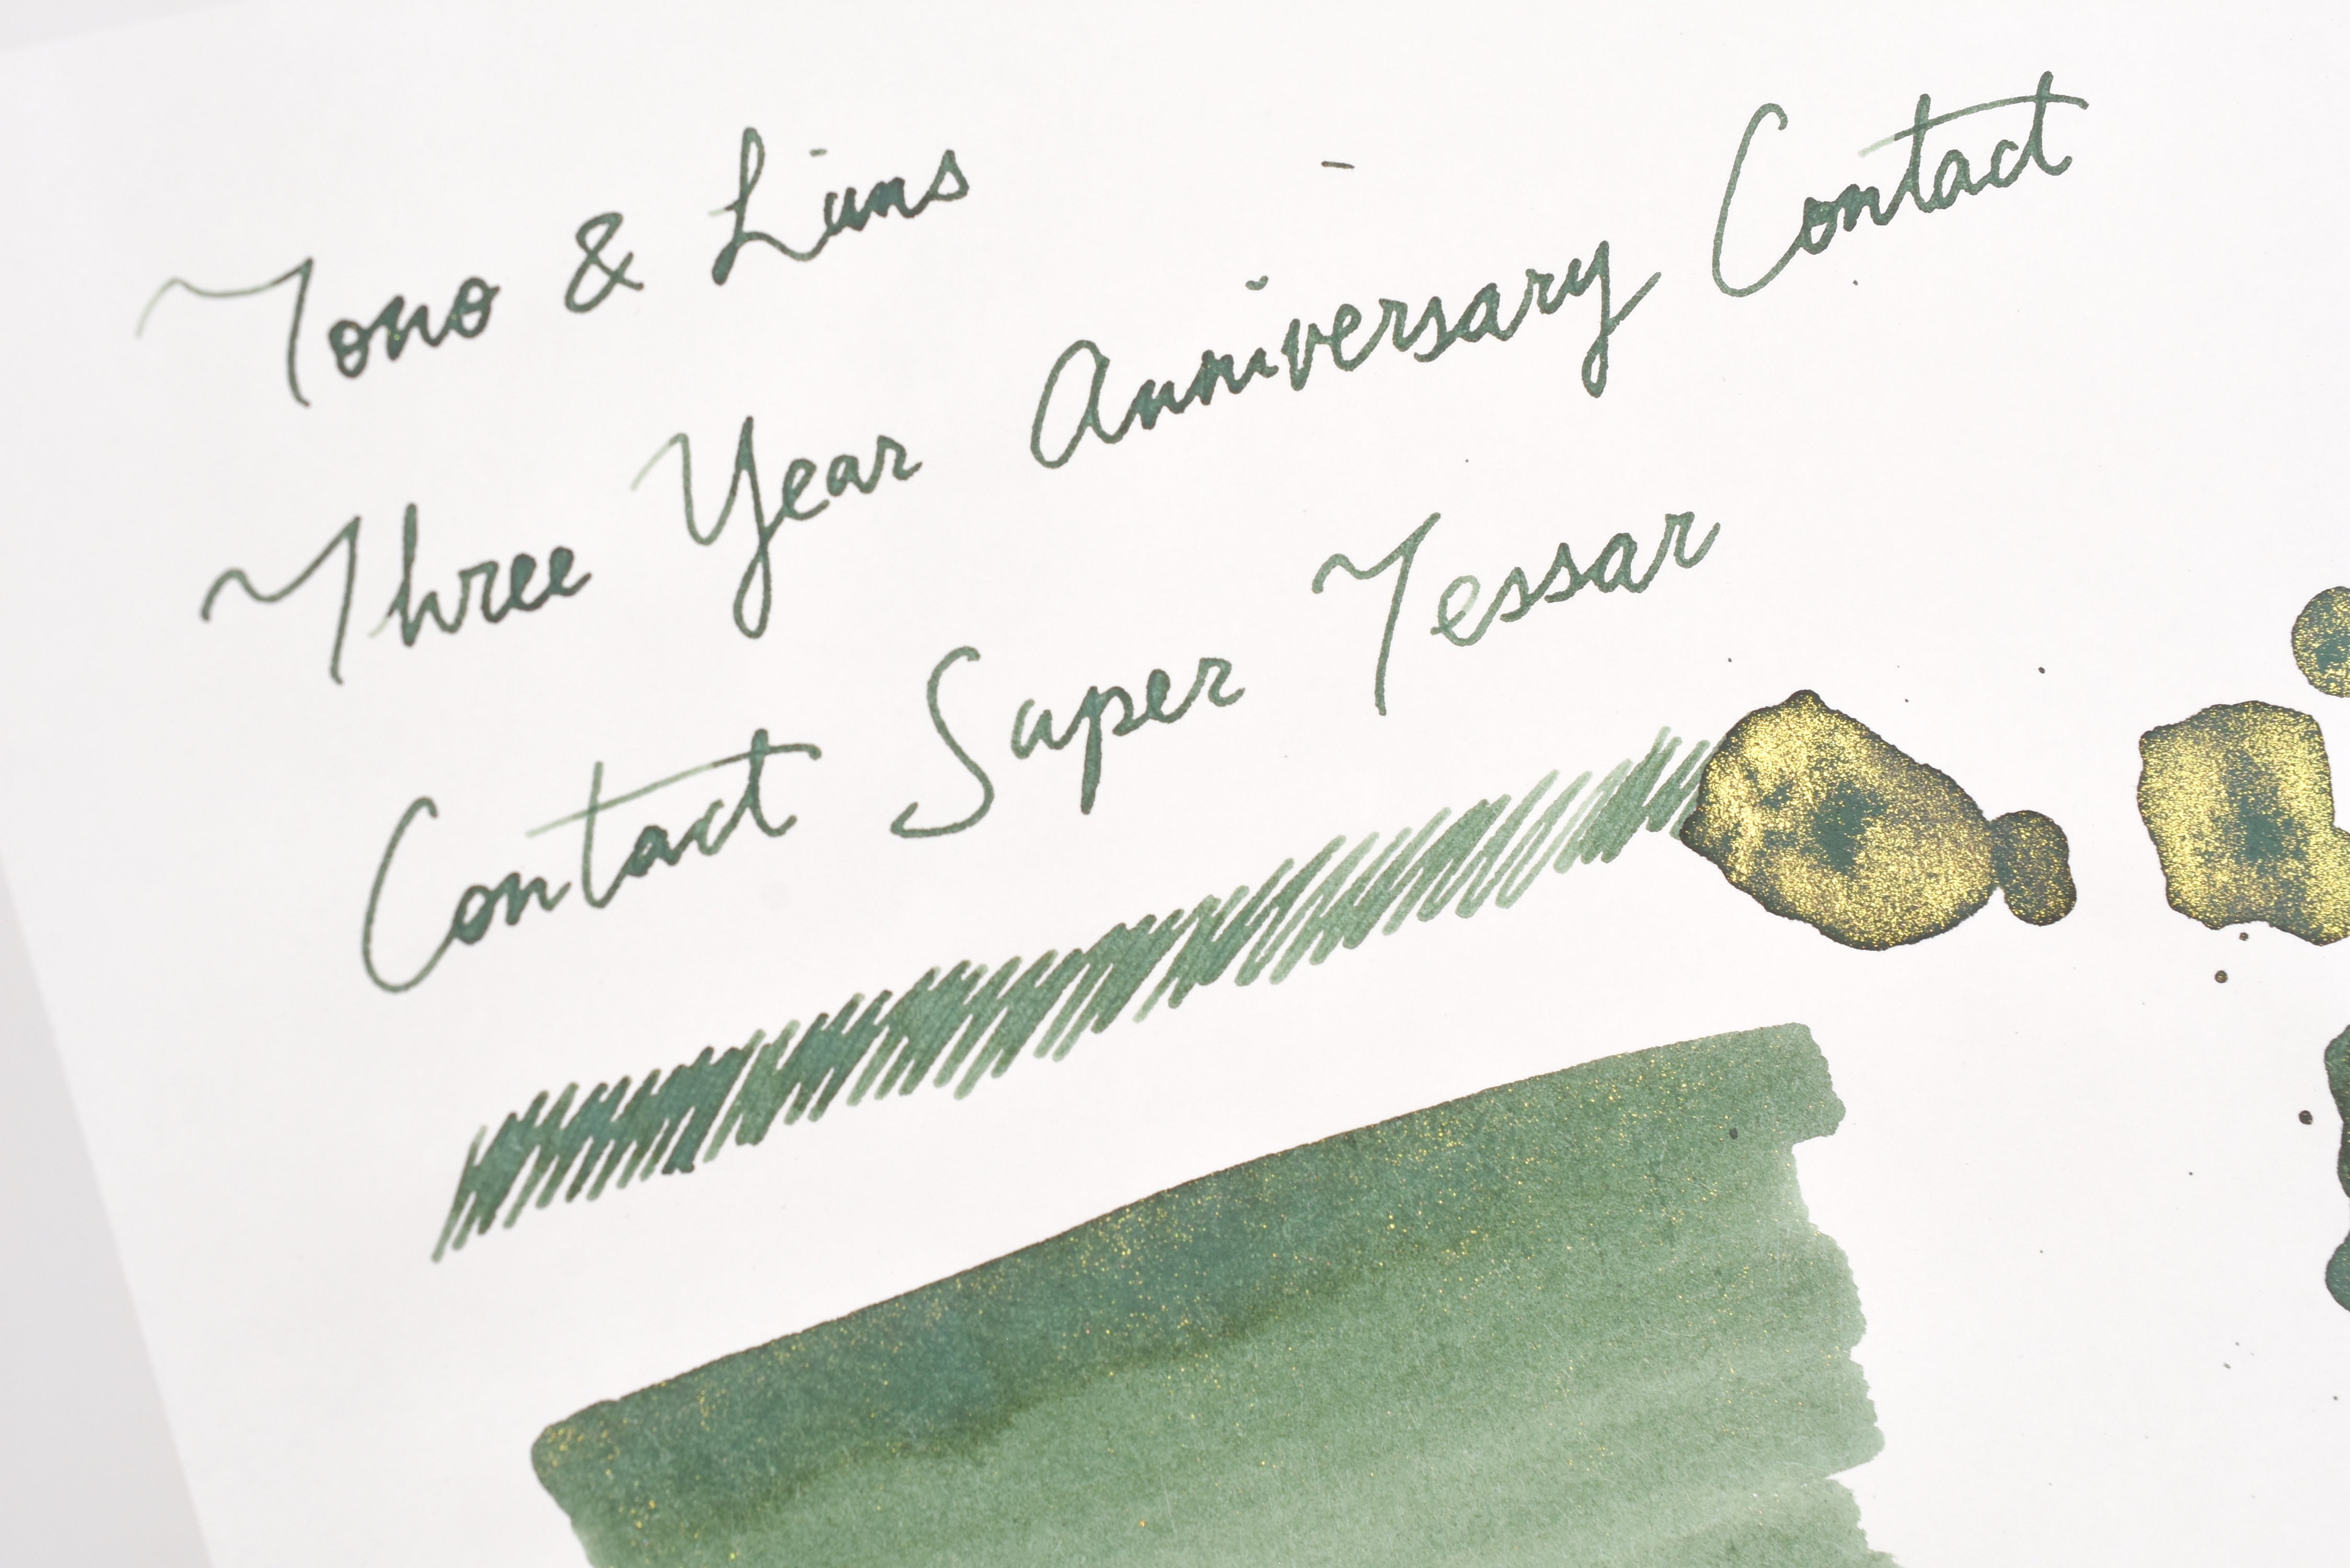 Tono & Lims
Three Year Anniversary Contact
Contact Super Tessar